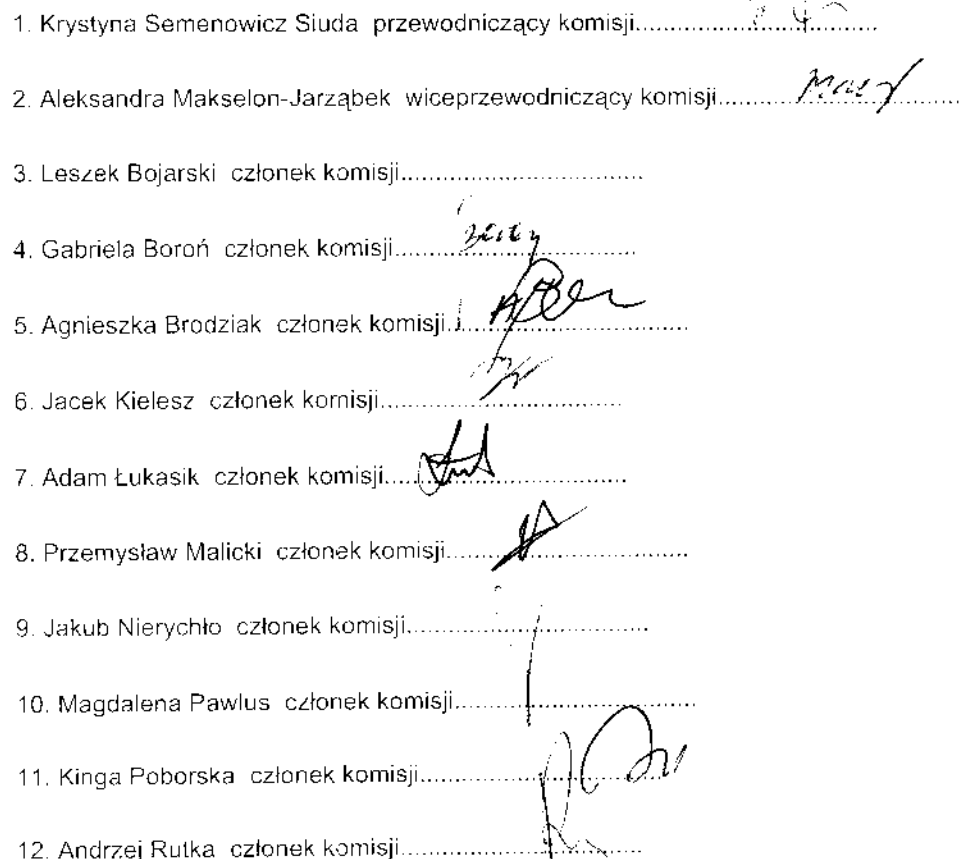 1. Krystyna Semenowicz Siuda przewodniczący komisji..................................
2. Aleksandra Makselon-Jarząbek wiceprzewodniczący komisji..................................
3. Leszek Bojarski członek komisji..................................
4. Gabriela Boroń członek komisji..................................
5. Agnieszka Brodziak członek komisji..................................
6. Jacek Kielesz członek komisji..................................
7. Adam Łukasik członek komisji..................................
8. Przemysław Malicki członek komisji..................................
9. Jakub Nierychło członek komisji..................................
10. Magdalena Pawlus członek komisji..................................
11. Kinga Poborska członek komisji..................................
12. Andrzej Rutka członek komisji..................................